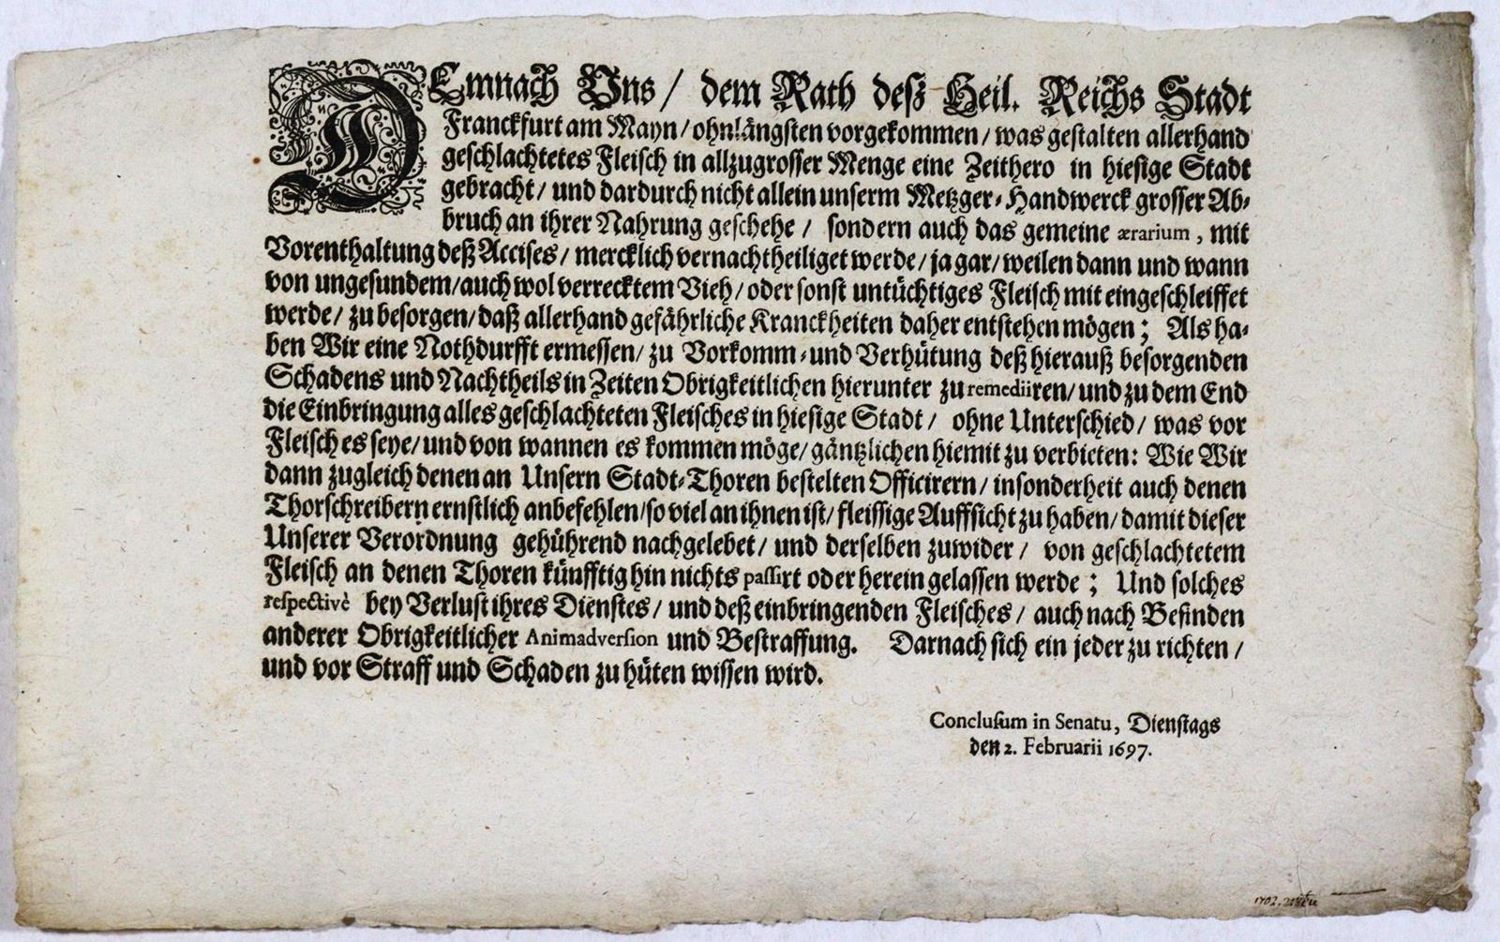 DEmnach Uns / dem Rath deß Heil. Reichs Stadt
Franckfurt am Mayn / ohnlängsten vorgekommen / was gestalten allerhand
geschlachtetes Fleisch in allzugrosser Menge eine Zeithero in hiesige Stadt
gebracht / und dardurch nicht allein unserm Metzger-Handwerck grosser Ab-
bruch an ihrer Nahrung geschehe / sondern auch das gemeine ærarium, mit
Vorenthaltung deß Accises / mercklich vernachtheiliget werde / ja gar / weilen dann und wann
von ungesundem / auch wol verrecktem Vieh / oder sonst untüchtiges Fleisch mit eingeschleiffet
werde / zu besorgen / daß allerhand gefährliche Kranckheiten daher entstehen mögen; Als ha-
ben Wir eine Nothdurfft ermessen / zu Vorkomm- und Verhütung deß hierauß besorgenden
Schadens und Nachtheils in Zeiten Obrigkeitlichen hierunter zu remediiren / und zu dem End
die Einbringung alles geschlachteten Fleisches in hiesige Stadt / ohne Unterschied / was vor
Fleisch es seye / und von wannen es kommen möge / gäntzlichen hiemit zu verbieten: Wie Wir
dann zugleich denen an Unsern Stadt-Thoren bestelten Officirern / insonderheit auch denen
Thorschreibern ernstlich anbefehlen / so viel an ihnen ist / fleissige Auffsicht zu haben / damit dieser
Unserer Verordnung gehührend nachgelebet / und derselben zuwider / von geschlachtetem
Fleisch an denen Thoren künfftig hin nichts passirt oder herein gelassen werde; Und solches
respectivè bey Verlust ihres Dienstes / und deß einbringenden Fleisches / auch nach Befinden
anderer Obrigkeitlicher Animadversion und Bestraffung. Darnach sich ein jeder zu richten /
und vor Straff und Schaden zu hüten wissen wird.
Conclusum in Senatu, Dienstags
den 2. Februarii 1697.
1702.